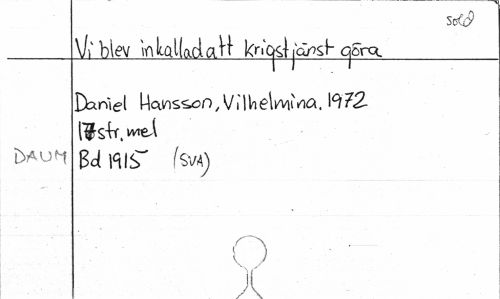 sold
Vi blev inkallad att krigstjänst göra
Daniel Hansson, Vilhelmina. 1972
17 str. mel
DAUM Bd 1915 (SVA)